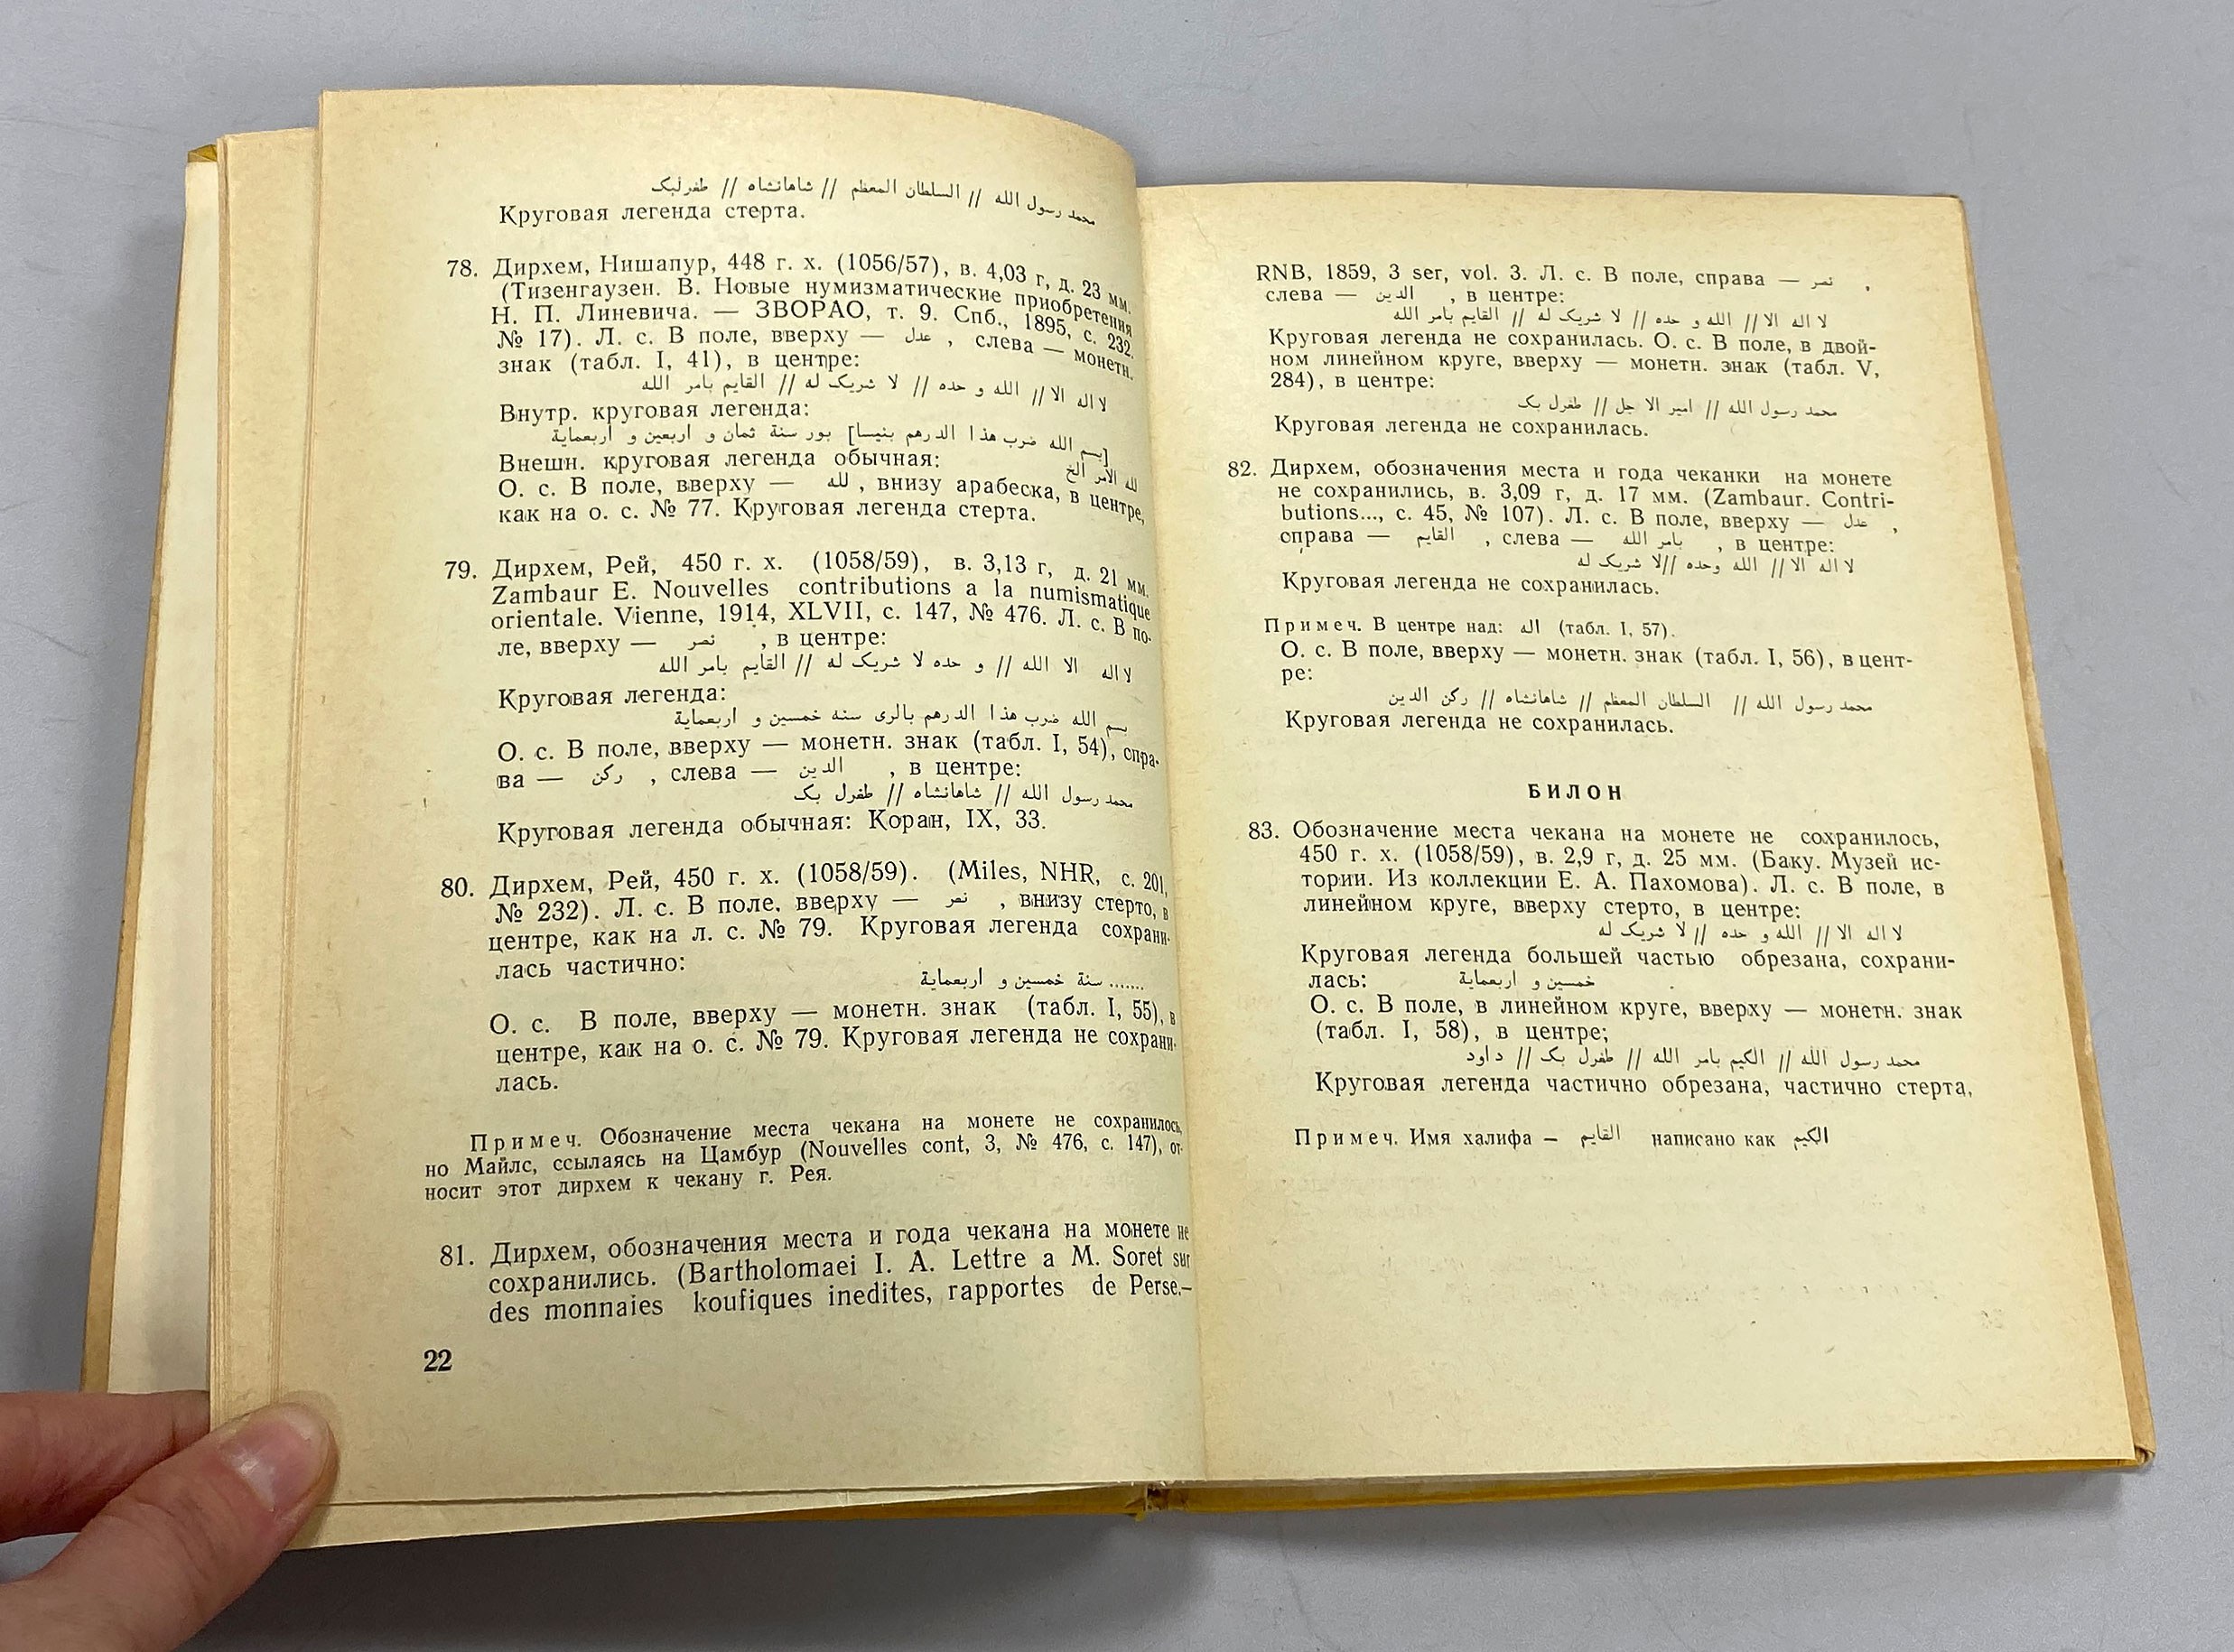 محمد رسول الله // السلطان المعظم // شاهانشاه // طغرلبك
Круговая легенда стерта.
78. Дирхем, Нишапур, 448 г. х. (1056/57), в. 4,03 г, д. 23 мм.
(Тизенгаузен. В. Новые нумизматические приобретения
Н. П. Линевича. — ЗВОРАО, т. 9. Спб., 1895, с. 232.
№ 17). Л. с. В поле, вверху — عدل , слева — монетн.
знак (табл. I, 41), в центре:
لا اله الا // الله و حده // لا شريک له // القايم بامر الله
Внутр. круговая легенда:
[بسم الله ضرب هذا الدرهم بنيسا] بور سنة ثمان و اربعين و اربعماية
Внешн. круговая легенда обычная: لله الامر الخ
О. с. В поле, вверху — لله , внизу арабеска, в центре,
как на о. с. № 77. Круговая легенда стерта.
79. Дирхем, Рей, 450 г. х. (1058/59), в. 3,13 г, д. 21 мм.
Zambaur E. Nouvelles contributions a la numismatique
orientale. Vienne, 1914, XLVII, с. 147, № 476. Л. с. В по-
ле, вверху — نصر , в центре:
لا اله الا الله // و حده لا شريک له // القايم بامر الله
Круговая легенда:
بسم الله ضرب هذا الدرهم بالرى سنه خمسين و اربعماية
О. с. В поле, вверху — монетн. знак (табл. I, 54), спра-
ва — ركن , слева — الدين , в центре:
محمد رسول الله // شاهانشاه // طغرل بک
Круговая легенда обычная: Коран, IX, 33.
80. Дирхем, Рей, 450 г. х. (1058/59). (Miles, NHR, с. 201,
№ 232). Л. с. В поле. вверху — نصر , внизу стерто, в
центре, как на л. с. № 79. Круговая легенда сохрани-
лась частично:
....... سنة خمسين و اربعماية
О. с. В поле, вверху — монетн. знак (табл. I, 55), в
центре, как на о. с. № 79. Круговая легенда не сохрани-
лась.
Примеч. Обозначение места чекана на монете не сохранилось,
но Майлс, ссылаясь на Цамбур (Nouvelles cont, 3, № 476, с. 147), от-
носит этот дирхем к чекану г. Рея.
81. Дирхем, обозначения места и года чекана на монете не
сохранились. (Bartholomaei I. A. Lettre a M. Soret sur
des monnaies koufiques inedites, rapportes de Perse.—
22
RNB, 1859, 3 ser, vol. 3. Л. с. В поле, справа — نصر ,
слева — الدين , в центре:
لا اله الا // الله و حده // لا شريک له // القايم بامر الله
Круговая легенда не сохранилась. О. с. В поле, в двой-
ном линейном круге, вверху — монетн. знак (табл. V,
284), в центре:
محمد رسول الله // امير الا جل // طغرل بک
Круговая легенда не сохранилась.
82. Дирхем, обозначения места и года чеканки на монете
не сохранились, в. 3,09 г, д. 17 мм. (Zambaur. Contri-
butions..., с. 45, № 107). Л. с. В поле, вверху — عدل ,
справа — القايم , слева — بامر الله , в центре:
لا اله الا // الله وحده //لا شريک له
Круговая легенда не сохранилась.
Примеч. В центре над: اله (табл. I, 57).
О. с. В поле, вверху — монетн. знак (табл. I, 56), в цент-
ре:
محمد رسول الله // السلطان المعظم // شاهانشاه // ركن الدين
Круговая легенда не сохранилась.
БИЛОН
83. Обозначение места чекана на монете не сохранилось,
450 г. х. (1058/59), в. 2,9 г, д. 25 мм. (Баку. Музей ис-
тории. Из коллекции Е. А. Пахомова). Л. с. В поле, в
линейном круге, вверху стерто, в центре:
لا اله الا // الله و حده // لا شريک له
Круговая легенда большей частью обрезана, сохрани-
лась: خمسين و اربعماية
О. с. В поле, в линейном круге, вверху — монетн. знак
(табл. I, 58), в центре;
محمد رسول الله // الكيم بامر الله // طغرل بک // داود
Круговая легенда частично обрезана, частично стерта,
Примеч. Имя халифа — القايم написано как الكيم